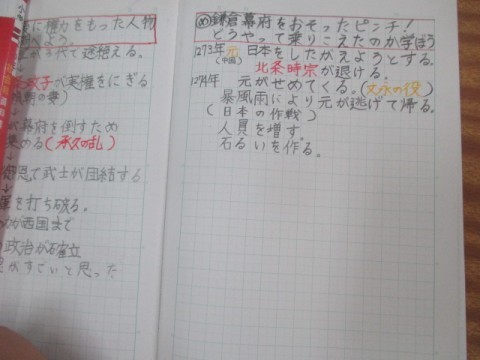 に権力をもった人物
べよう。
が3代で途絶える。
政子が実権をにぎる
幕府を倒すため
める(承久の乱)
恩で武士が団結する
を打ち破る。
力が西国まで
政治が確立
のすごいと思った
め 鎌倉幕府をおそったピンチ!
どうやって乗りこえたのか学ぼう
1273年 元 日本をしたがえようとする。
(中国)
北条時宗が退ける。
1274年 元がせめてくる。(文永の役)
暴風雨により元が逃げて帰る。
(日本の作戦)
人員を増す。
石るいを作る。